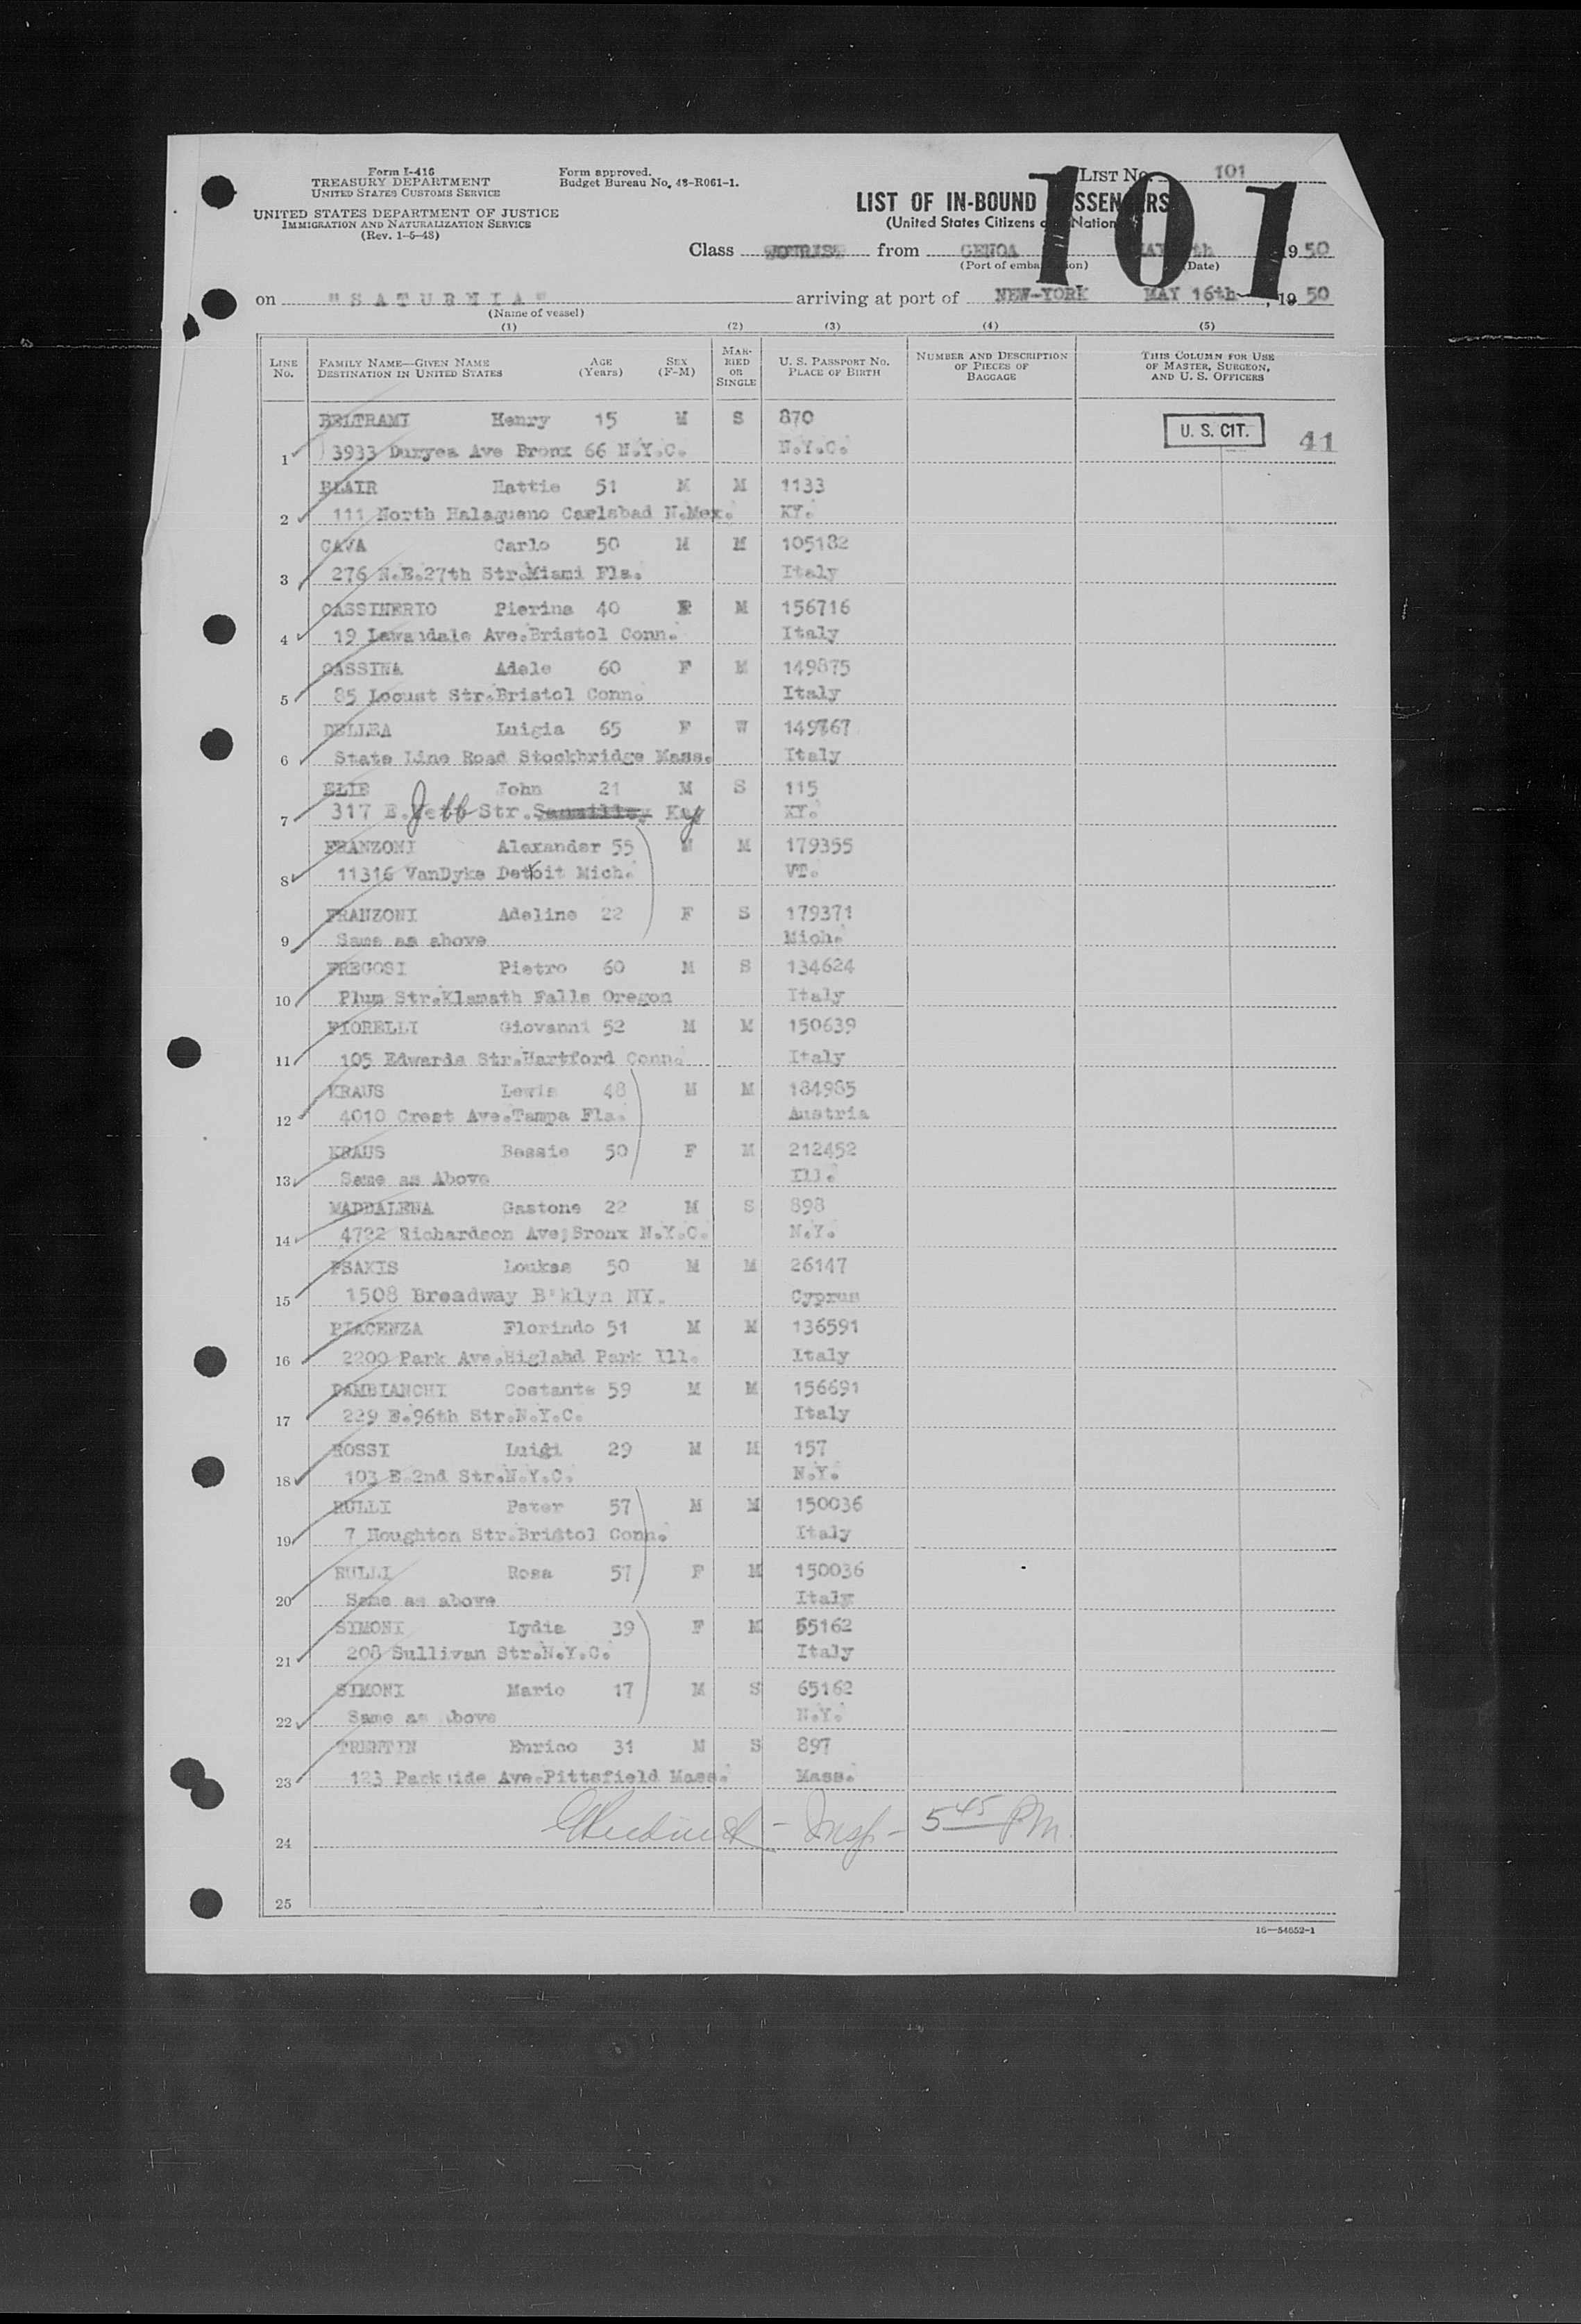 Form I-416
TREASURY DEPARTMENT
UNITED STATES CUSTOMS SERVICE
UNITED STATES DEPARTMENT OF JUSTICE
IMMIGRATION AND NATURALIZATION SERVICE
(Rev. 1-5-48)
Form approved.
Budget Bureau No. 48-R061-1.
LIST No. 101
101
LIST OF IN-BOUND PASSENGERS
(United States Citizens and Nationals)
Class TOURIST from GENOA 1950
(Port of embarkation) (Date)
on "SATURNIA" arriving at port of NEW-YORK MAY 16th, 1950
(Name of vessel)
(1) (2) (3) (4) (5)
LINE No. FAMILY NAME—GIVEN NAME DESTINATION IN UNITED STATES AGE (Years) SEX (F-M) MARRIED OR SINGLE U. S. PASSPORT No. PLACE OF BIRTH NUMBER AND DESCRIPTION OF PIECES OF BAGGAGE THIS COLUMN FOR USE OF MASTER, SURGEON, AND U. S. OFFICERS
BELTRAMI Henry 15 M S 870 U. S. CIT. 41
1 3933 Duryea Ave Bronx 66 N.Y.C. N.Y.C.
BLAIR Hattie 51 M M 1133
2 111 North Halagueno Carlsbad N.Mex. KY.
CAVA Carlo 50 M M 105182
3 276 N.E.27th Str.Miami Fla. Italy
CASSINERIO Pierina 40 F M 156716
4 19 Lawndale Ave.Bristol Conn. Italy
CASSINA Adele 60 F M 149875
5 85 Locust Str.Bristol Conn. Italy
DELLEA Luigia 65 F W 149767
6 State Line Road Stockbridge Mass. Italy
ELIE John 21 M S 115
7 317 E. Str. Ky KY.
FRANZONI Alexander 55 M M 179355
8 11316 VanDyke Detroit Mich. VT.
FRANZONI Adeline 22 F S 179371
9 Same as above Mich.
FREGOSI Pietro 60 M S 134624
10 Plum Str.Klamath Falls Oregon Italy
FIORELLI Giovanni 52 M M 150639
11 105 Edwards Str.Hartford Conn. Italy
KRAUS Lewis 48 M M 184985
12 4010 Crest Ave.Tampa Fla. Austria
KRAUS Bessie 50 F M 212452
13 Same as Above Ill.
MADDALENA Gastone 22 M S 898
14 4722 Richardson Ave,Bronx N.Y.C. N.Y.
PSAKIS Loukas 50 M M 26147
15 1508 Broadway B'klyn NY. Cyprus
PIACENZA Florindo 51 M M 136591
16 2200 Park Ave.Higlahd Park Ill. Italy
PAMBIANCHI Costante 59 M M 156691
17 229 E.96th Str.N.Y.C. Italy
ROSSI Luigi 29 M M 157
18 103 E.2nd Str.N.Y.C. N.Y.
RULLI Peter 57 M M 150036
19 7 Houghton Str.Bristol Conn. Italy
RULLI Rosa 57 F M 150036
20 Same as above Italy
SIMONI Lydia 39 F M 65162
21 208 Sullivan Str.N.Y.C. Italy
SIMONI Mario 17 M S 65162
22 Same as above N.Y.
TRENTIN Enrico 31 M S 897
23 123 Parkside Ave.Pittsfield Mass. Mass.
24 Insp- 5 45 PM.
25
16—54652-1